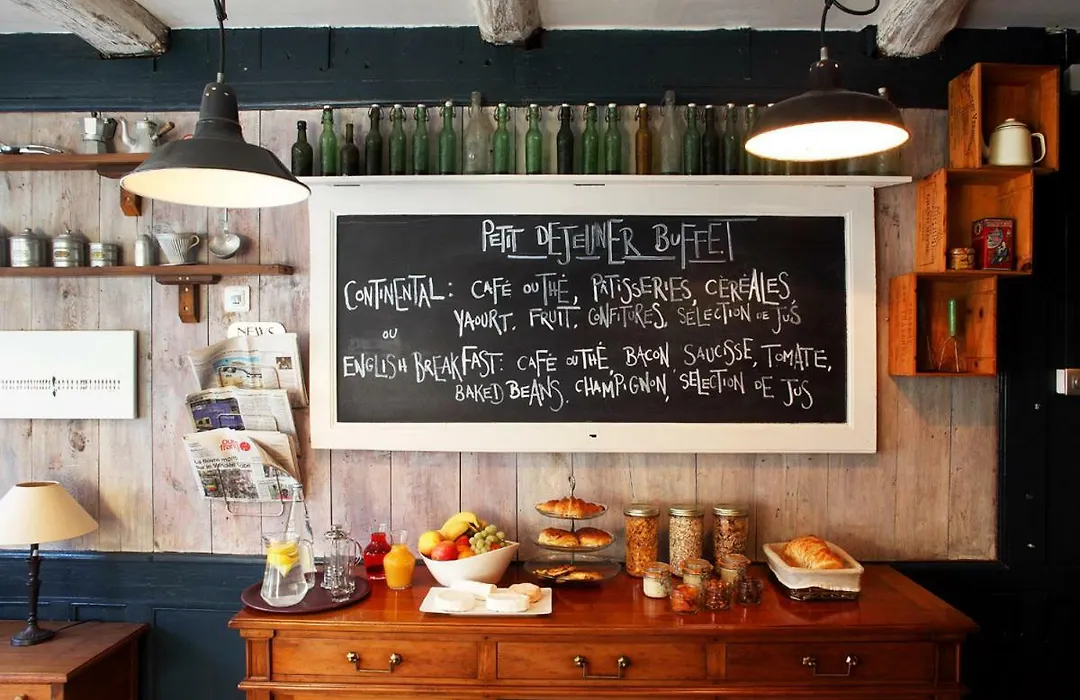 PETIT DEJEUNER BUFFET
CONTINENTAL: CAFÉ OU THÉ, PÂTISSERIES, CÉRÉALES
YAOURT, FRUIT, CONFITURES, SÉLECTION DE JUS
OU
ENGLISH BREAKFAST: CAFÉ OU THÉ, BACON, SAUCISSE, TOMATE,
BAKED BEANS, CHAMPIGNON, SELECTION DE JUS
NEWS
ouest
france